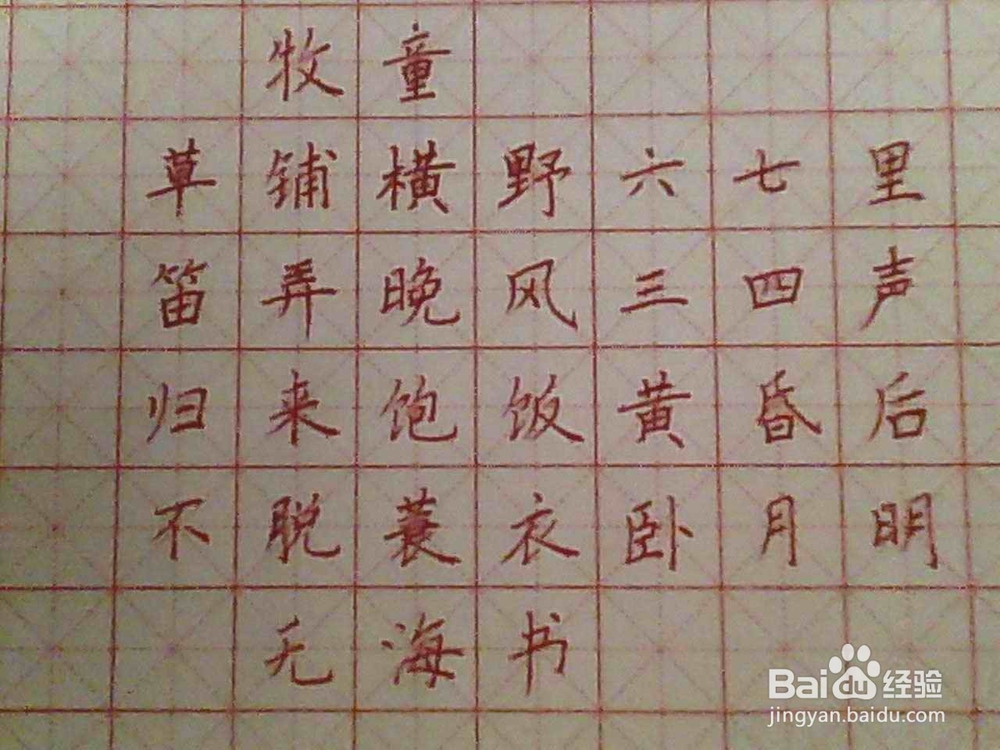 牧童
草铺横野六七里
笛弄晚风三四声
归来饱饭黄昏后
不脱蓑衣卧月明
无海书
Bai du 经验
jingyan.baidu.com